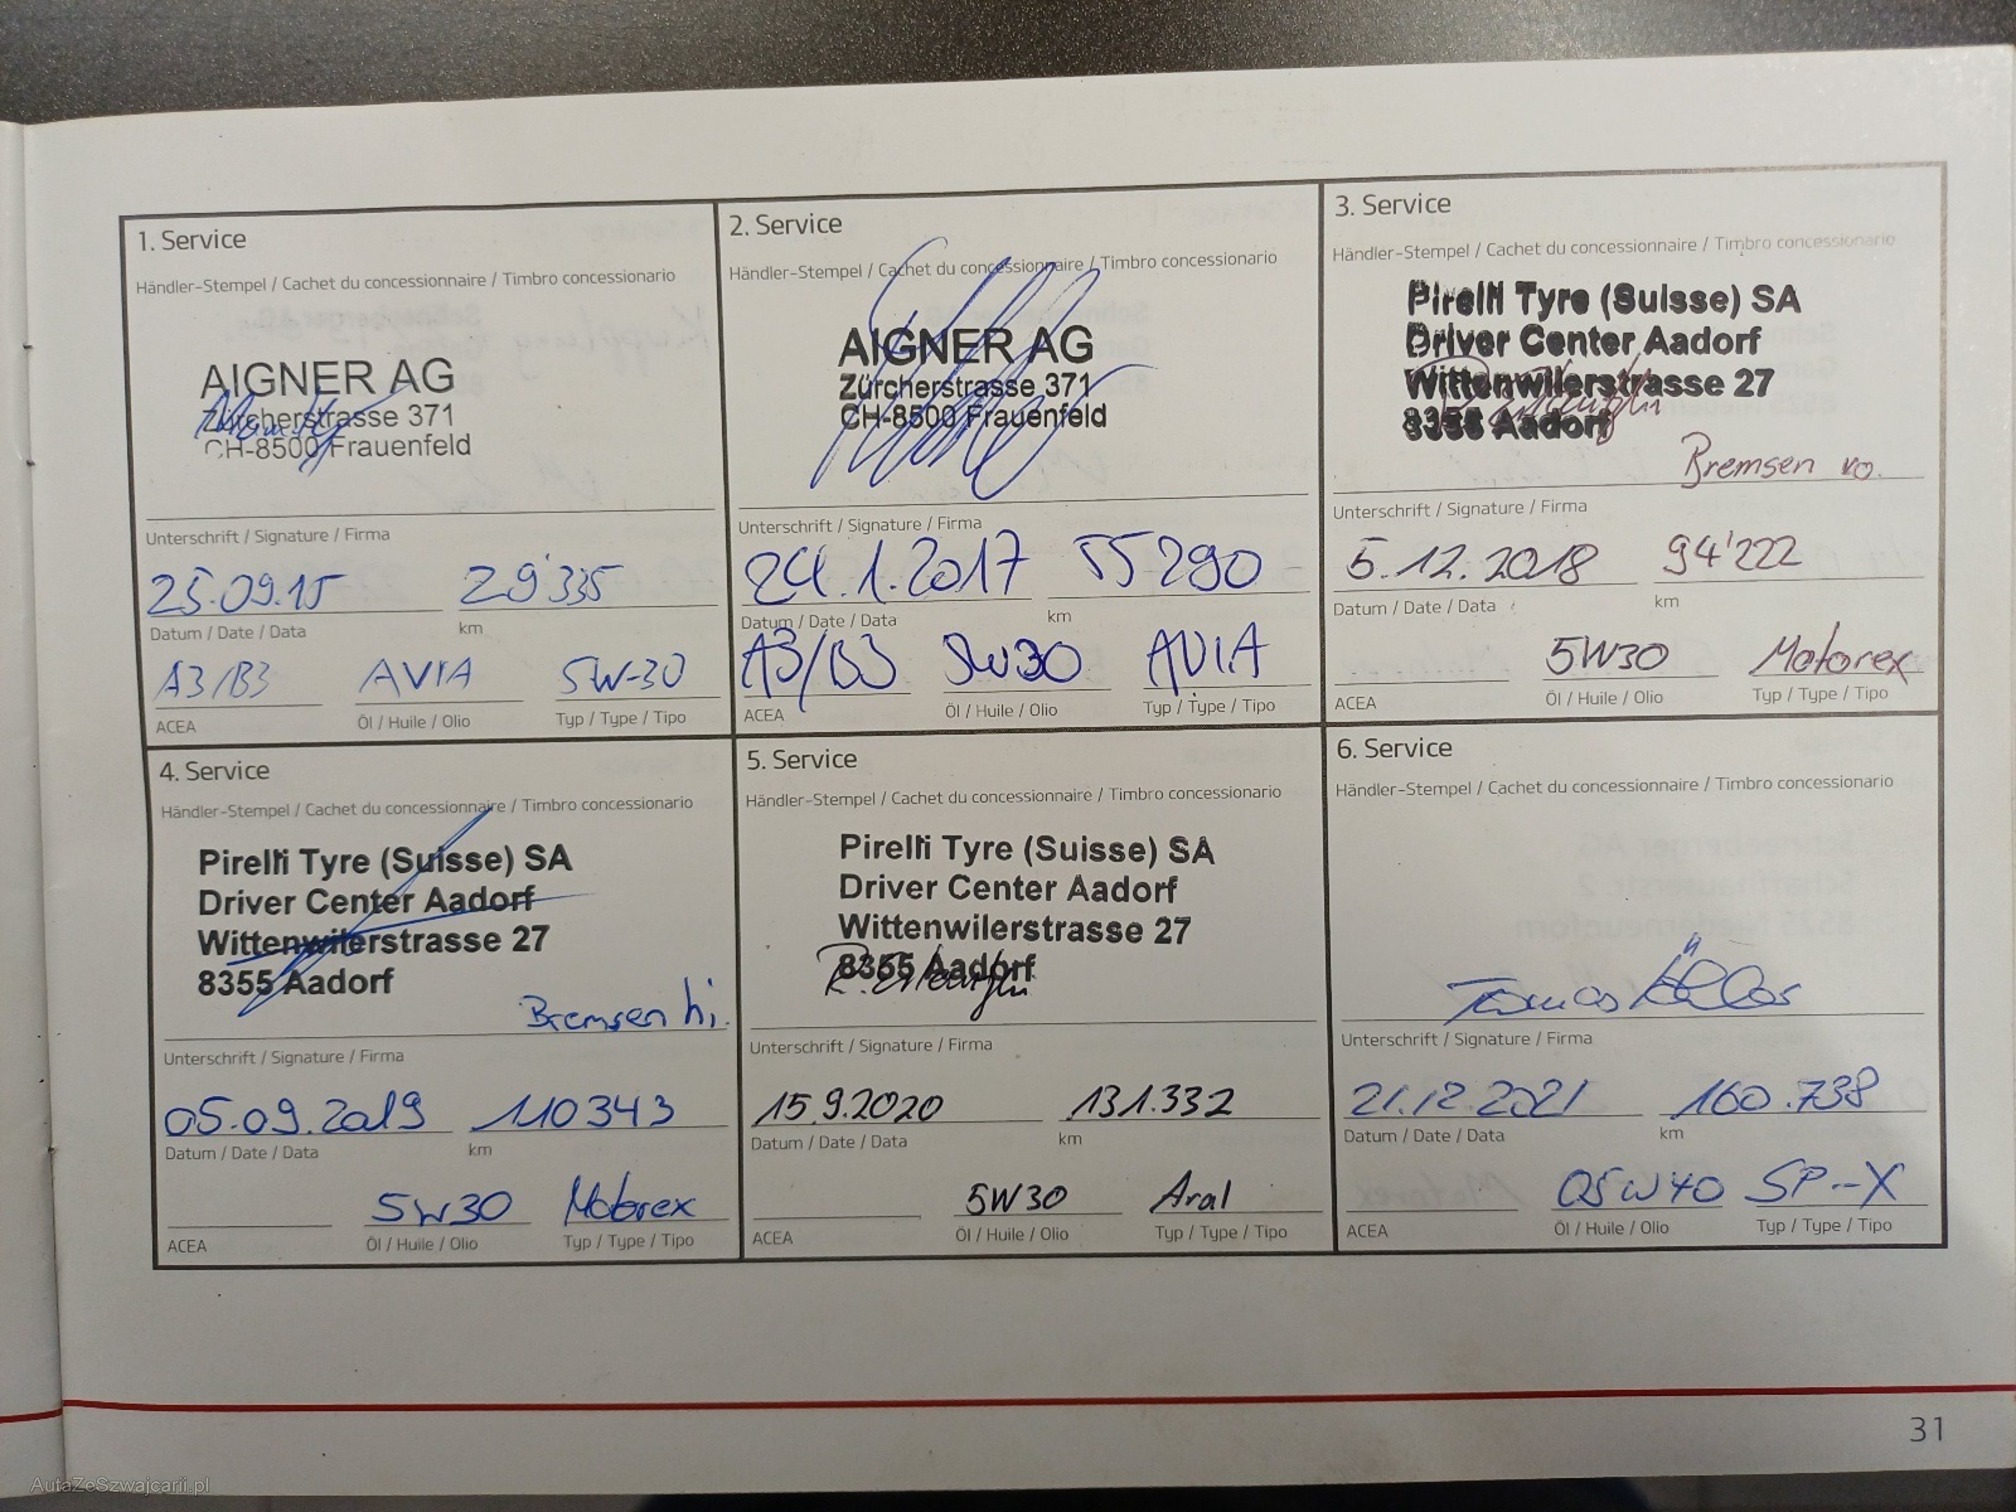 1. Service
Händler-Stempel / Cachet du concessionnaire / Timbro concessionario
AIGNER AG
Zürcherstrasse 371
CH-8500 Frauenfeld
Unterschrift / Signature / Firma
25.09.15 29'335
Datum / Date / Data km
A3/B3 AVIA 5W-30
ACEA Öl / Huile / Olio Typ / Type / Tipo
2. Service
Händler-Stempel / Cachet du concessionnaire / Timbro concessionario
AIGNER AG
Zürcherstrasse 371
CH-8500 Frauenfeld
Unterschrift / Signature / Firma
24.1.2017 55290
Datum / Date / Data km
A3/B3 5W30 AVIA
ACEA Öl / Huile / Olio Typ / Type / Tipo
3. Service
Händler-Stempel / Cachet du concessionnaire / Timbro concessionario
Pirelli Tyre (Suisse) SA
Driver Center Aadorf
Wittenwilerstrasse 27
8355 Aadorf
Bremsen vo.
Unterschrift / Signature / Firma
5.12.2018 94'222
Datum / Date / Data km
5W30 Motorex
ACEA Öl / Huile / Olio Typ / Type / Tipo
4. Service
Händler-Stempel / Cachet du concessionnaire / Timbro concessionario
Pirelli Tyre (Suisse) SA
Driver Center Aadorf
Wittenwilerstrasse 27
8355 Aadorf
Bremsen hi.
Unterschrift / Signature / Firma
05.09.2019 110343
Datum / Date / Data km
5W30 Motorex
ACEA Öl / Huile / Olio Typ / Type / Tipo
5. Service
Händler-Stempel / Cachet du concessionnaire / Timbro concessionario
Pirelli Tyre (Suisse) SA
Driver Center Aadorf
Wittenwilerstrasse 27
8355 Aadorf
Unterschrift / Signature / Firma
15.9.2020 131.332
Datum / Date / Data km
5W30 Aral
ACEA Öl / Huile / Olio Typ / Type / Tipo
6. Service
Händler-Stempel / Cachet du concessionnaire / Timbro concessionario
Unterschrift / Signature / Firma
21.12.2021 160.738
Datum / Date / Data km
05W40 SP-X
ACEA Öl / Huile / Olio Typ / Type / Tipo
31
AutaZeSzwajcarii.pl